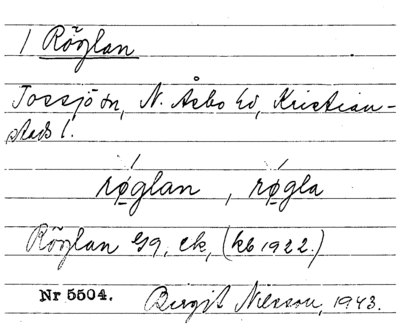 1 Röglan
Tossjö sn, N. Åsbo hd, Kristian-
stads l.
røglan, røgla
Röglan Gg, ek, (kb 1922.)
Nr 5504. Birgit Nilsson, 1943.